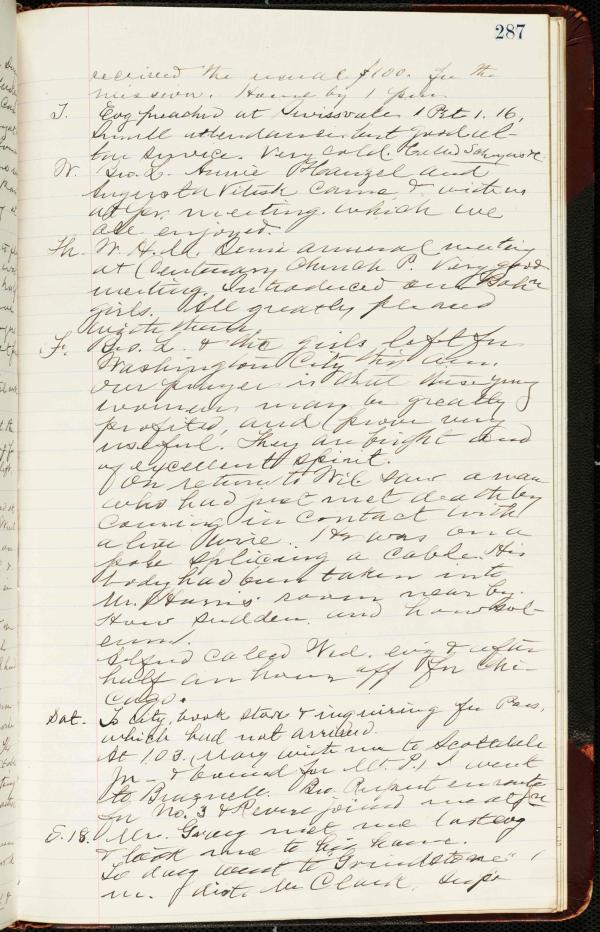 287
received the usual $100. for the
mission. Home by 1 p.m.
T. Evg preached at Swissvale 1 Pet 1. 16,
Small attendance but good al-
tar service. Very cold.
W. Bro. L. Annie Hanzel and
Augusta Vitisk came & with us
at pr. meeting which we
all enjoyed.
Th. W. H. M. Semi annual meeting
at Centenary Church P. Very good
meeting. Introduced our Bohn
girls. All greatly pleased
with them.
F. Bro. L. & the girls left for
Washington City this a.m.
our prayer is that these young
women may be greatly
profited, and prove very
useful. They are bright and
of excellent spirit.
On return to Wil. saw a man
who had just met death by
coming in contact with
a live wire. He was on a
pole splicing a cable. His
body had been taken into
Mr. Harris' room near by.
How sudden and how sol-
emn!
called Wed. evg & after
half an hour off for Chi-
cago.
Sat. To city, book store & inquiring for Pass,
which had not arrived.
At 1.03. Mary with me to Scottdale
Jn - & bound for Mt. P. I went
to Bradnell. Bro. en route
for No. 3 & Revere joined me at
S. 18. Mr. Gray met me last evg
& took me to his home.
To day went to Grindstone
m. with Mr Clark, Supr